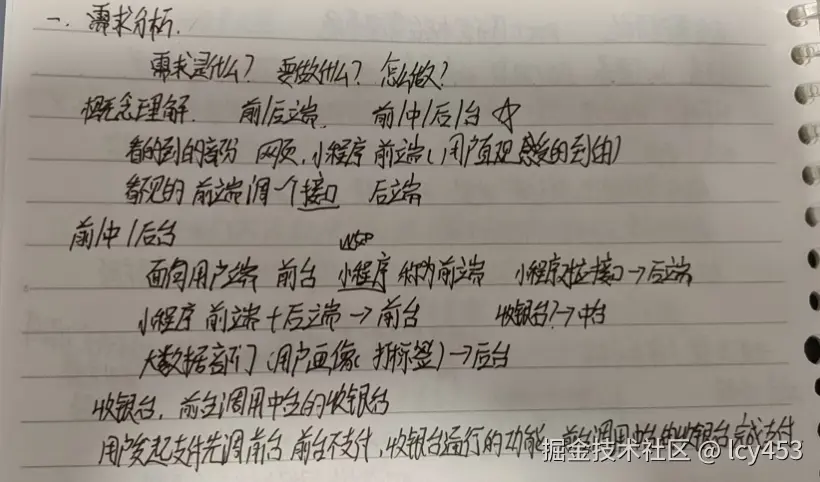 一. 需求分析.
需求是什么？ 要做什么？ 怎么做？
概念理解. 前/后端. 前/中/后/台 ☆
看的到的部份 网页,小程序 前端(用户直观感受的到的)
看见的 前端调一个接口 后端
前/中/后台
面向用户端 前台 小程序 称为前端 小程序对应接口→后端
小程序 前端+后端→前台 收银台?→中台
大数据部门(用户画像(打标签)→后台
收银台, 前台调用中台的收银台
用户发起支付先调前台 前台不支付,收银台运行的功能,前台调用中台的收银台完成支付
掘金技术社区 @ lcy453